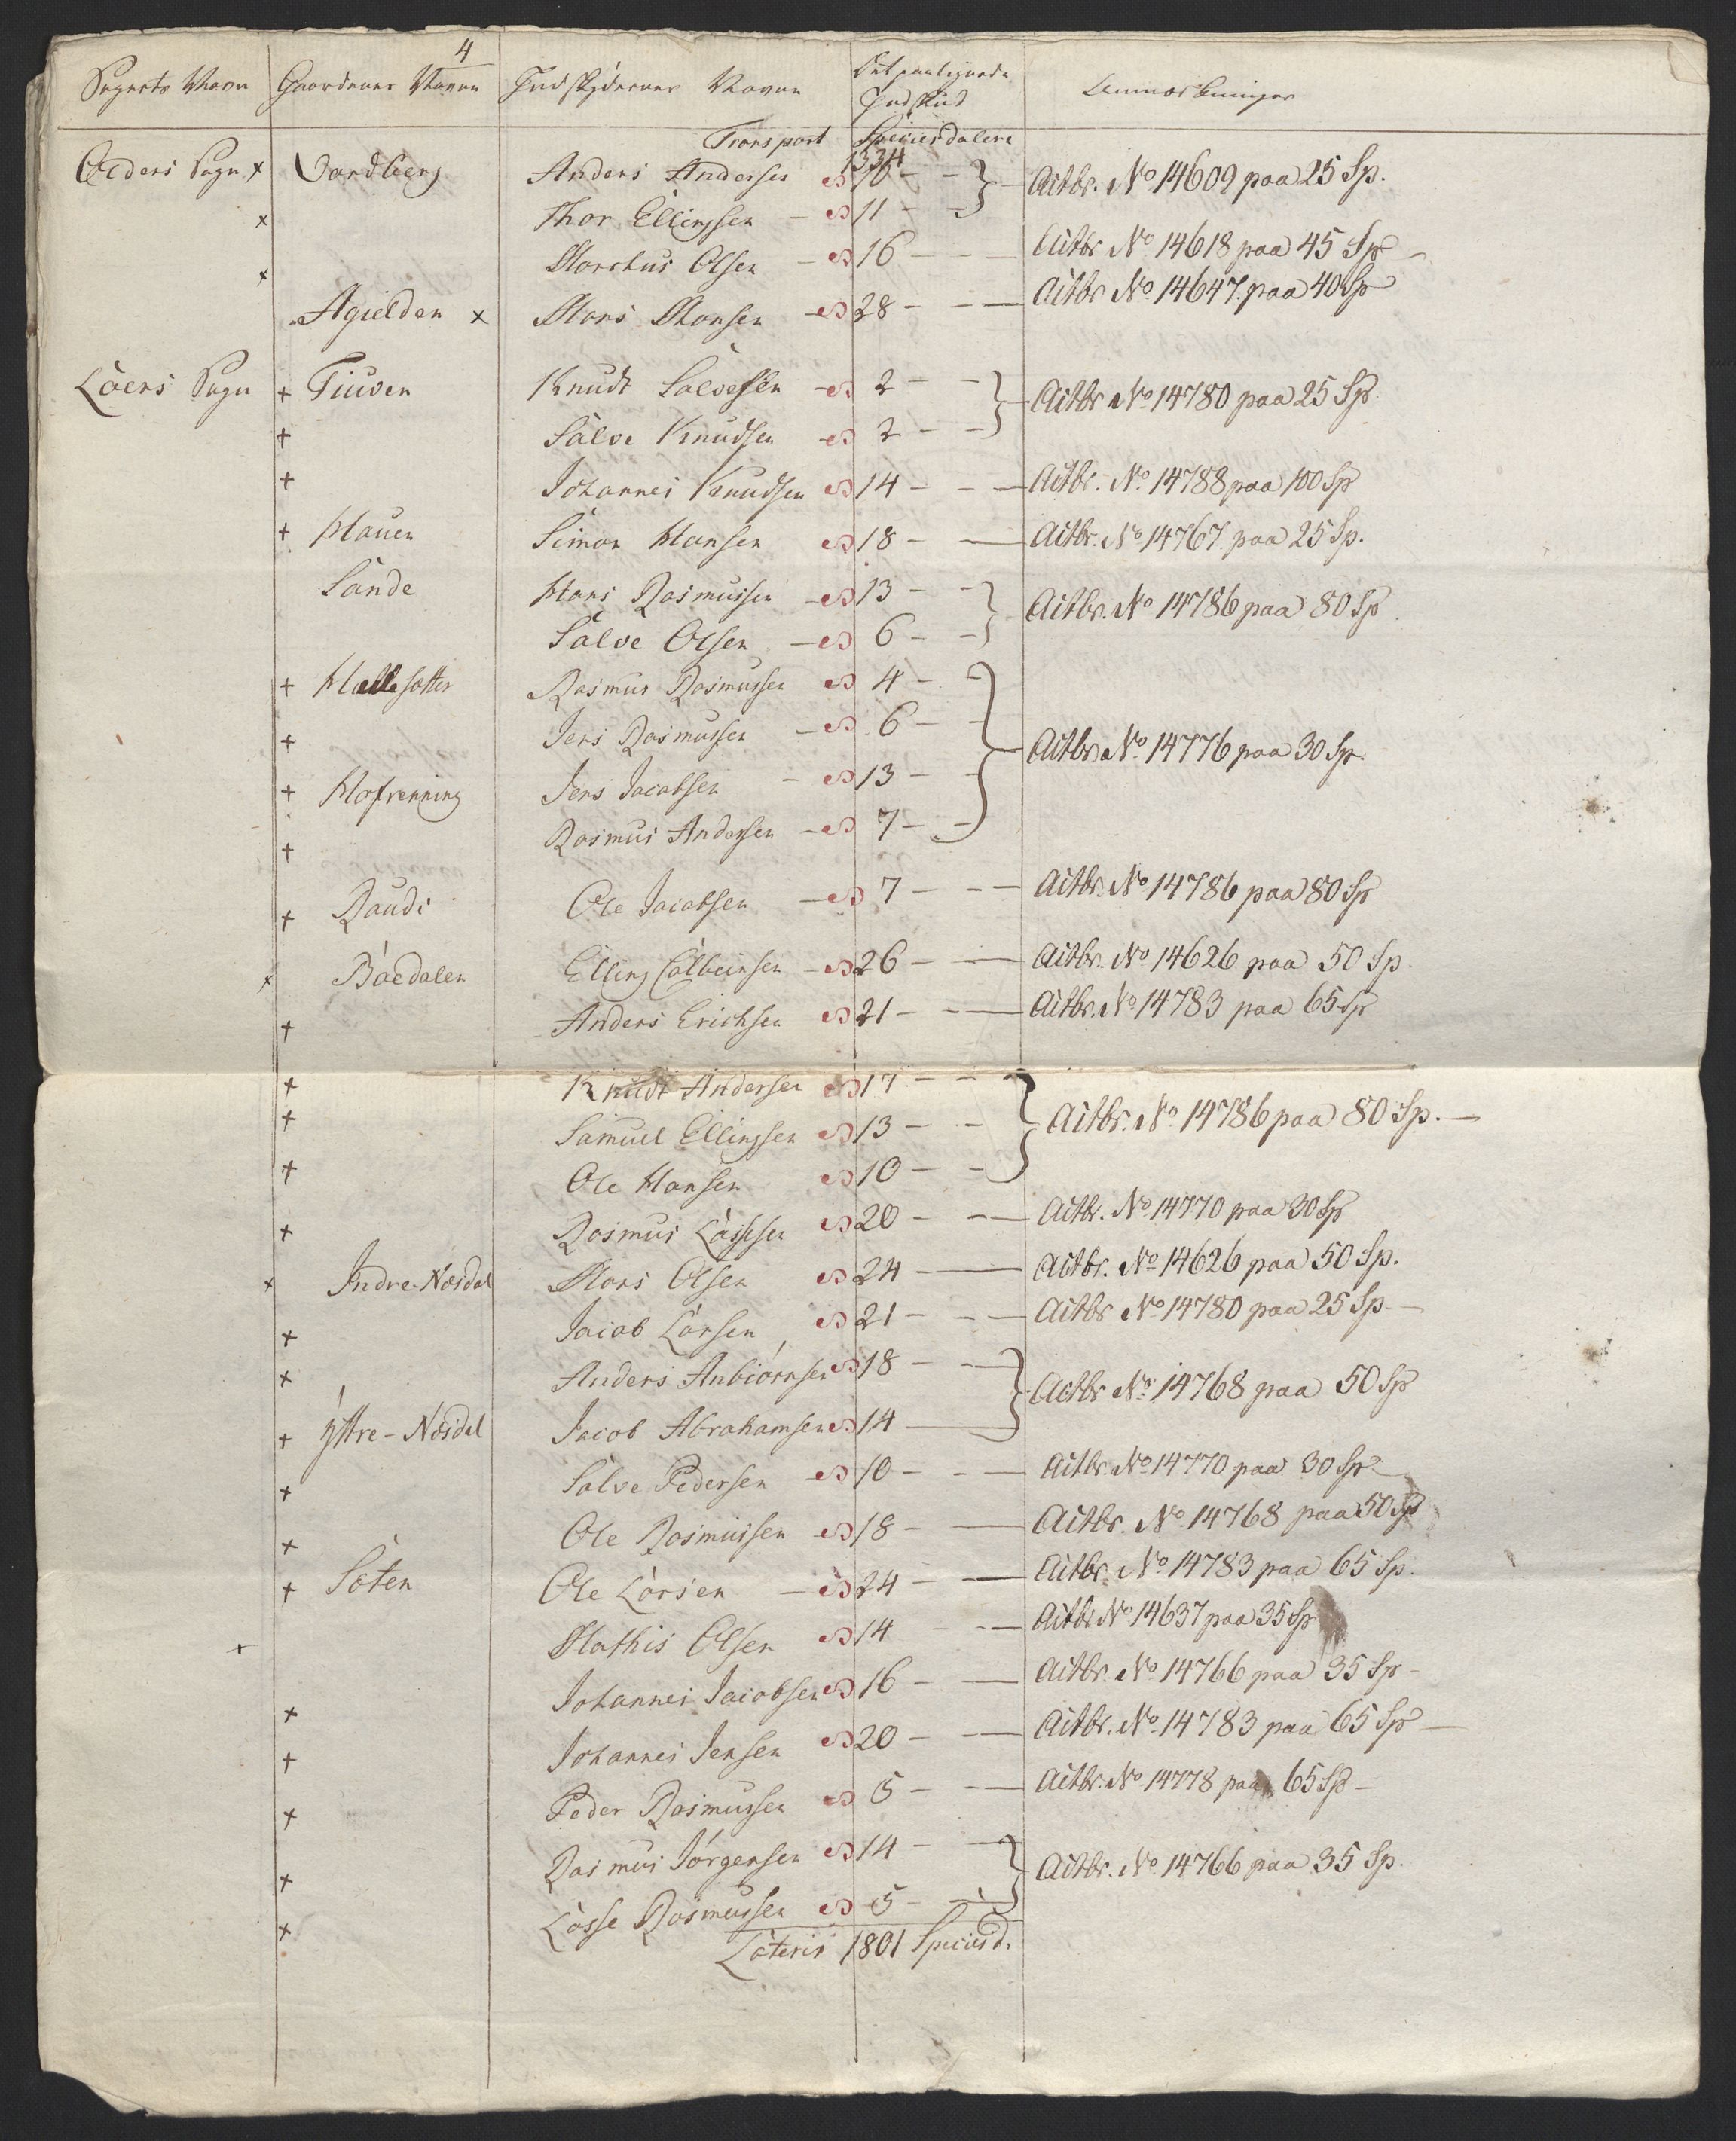 4
Sognets Navn Gaardenes Navne Indskydernes Navne Det paalignede Indskud Anmærkninger
Transport Speciesdalere
1334
Olders Sogn x Vandberg Anders Andersen 10 Actbr. No 14609 paa 25 Sp.
x Thor Ellingsen 11
x Markus Olsen 16 Actbr No 14618 paa 45 Sp
Agielden x Mons Monsen 28 Actbr No 14647 paa 40 Sp
Loens Sogn + Tiuven Knudt Salvesen 2 Actbr No 14780 paa 25 Sp
+ Salve Knudsen 2
+ Johannes Knudsen 14 Actbr. No 14788 paa 100 Sp
+ Hauen Simon Hansen 18 Actbr. No 14767 paa 25 Sp.
Sande Hans Rasmussen 13 Actbr. No 14786 paa 80 Sp
Salve Olsen 6
+ Hællesætter Rasmus Rasmussen 4
+ Jens Rasmussen 6 Actbr No 14776 paa 30 Sp
+ Hofrenning Jens Jacobsen 13
+ Rasmus Andersen 7
+ Raudi Ole Jacobsen 7 Actbr. No 14786 paa 80 Sp
x Bødalen Elling Colbeinsen 26 Actbr. No 14626 paa 50 Sp.
+ Anders Erichsen 21 Actbr. No 14783 paa 65 Sp
+ Knudt Andersen 17
+ Samuel Ellingsen 13 Actbr. No 14786 paa 80 Sp.
+ Ole Hansen 10
x Rasmus Lassesen 20 Actbr. No 14770 paa 30 Sp
x Indre-Næsdal Mons Olsen 24 Actbr. No 14626 paa 50 Sp.
x Jacob Larsen 21 Actbr No 14780 paa 25 Sp
x Anders Anbiørnsen 18 Actbr No 14768 paa 50 Sp
+ Yttre-Næsdal Jacob Abrahamsen 14
x Salve Pedersen 10 Actbr No 14770 paa 30 Sp
x Ole Rasmussen 18 Actbr. No 14768 paa 50 Sp
+ Sæten Ole Larsen 24 Actbr. No 14783 paa 65 Sp.
x Mathis Olsen 14 Actbr No 14637 paa 35 Sp
x Johannes Jacobsen 16 Actbr. No 14766 paa 35 Sp
+ Johannes Jensen 20 Actbr. No 14783 paa 65 Sp
x Peder Rasmussen 5 Actbr. No 14778 paa 65 Sp
x Rasmus Jørgensen 14 Actbr. No 14766 paa 35 Sp.
x Lasse Rasmussen 5
Lateris 1801 Speciesd.